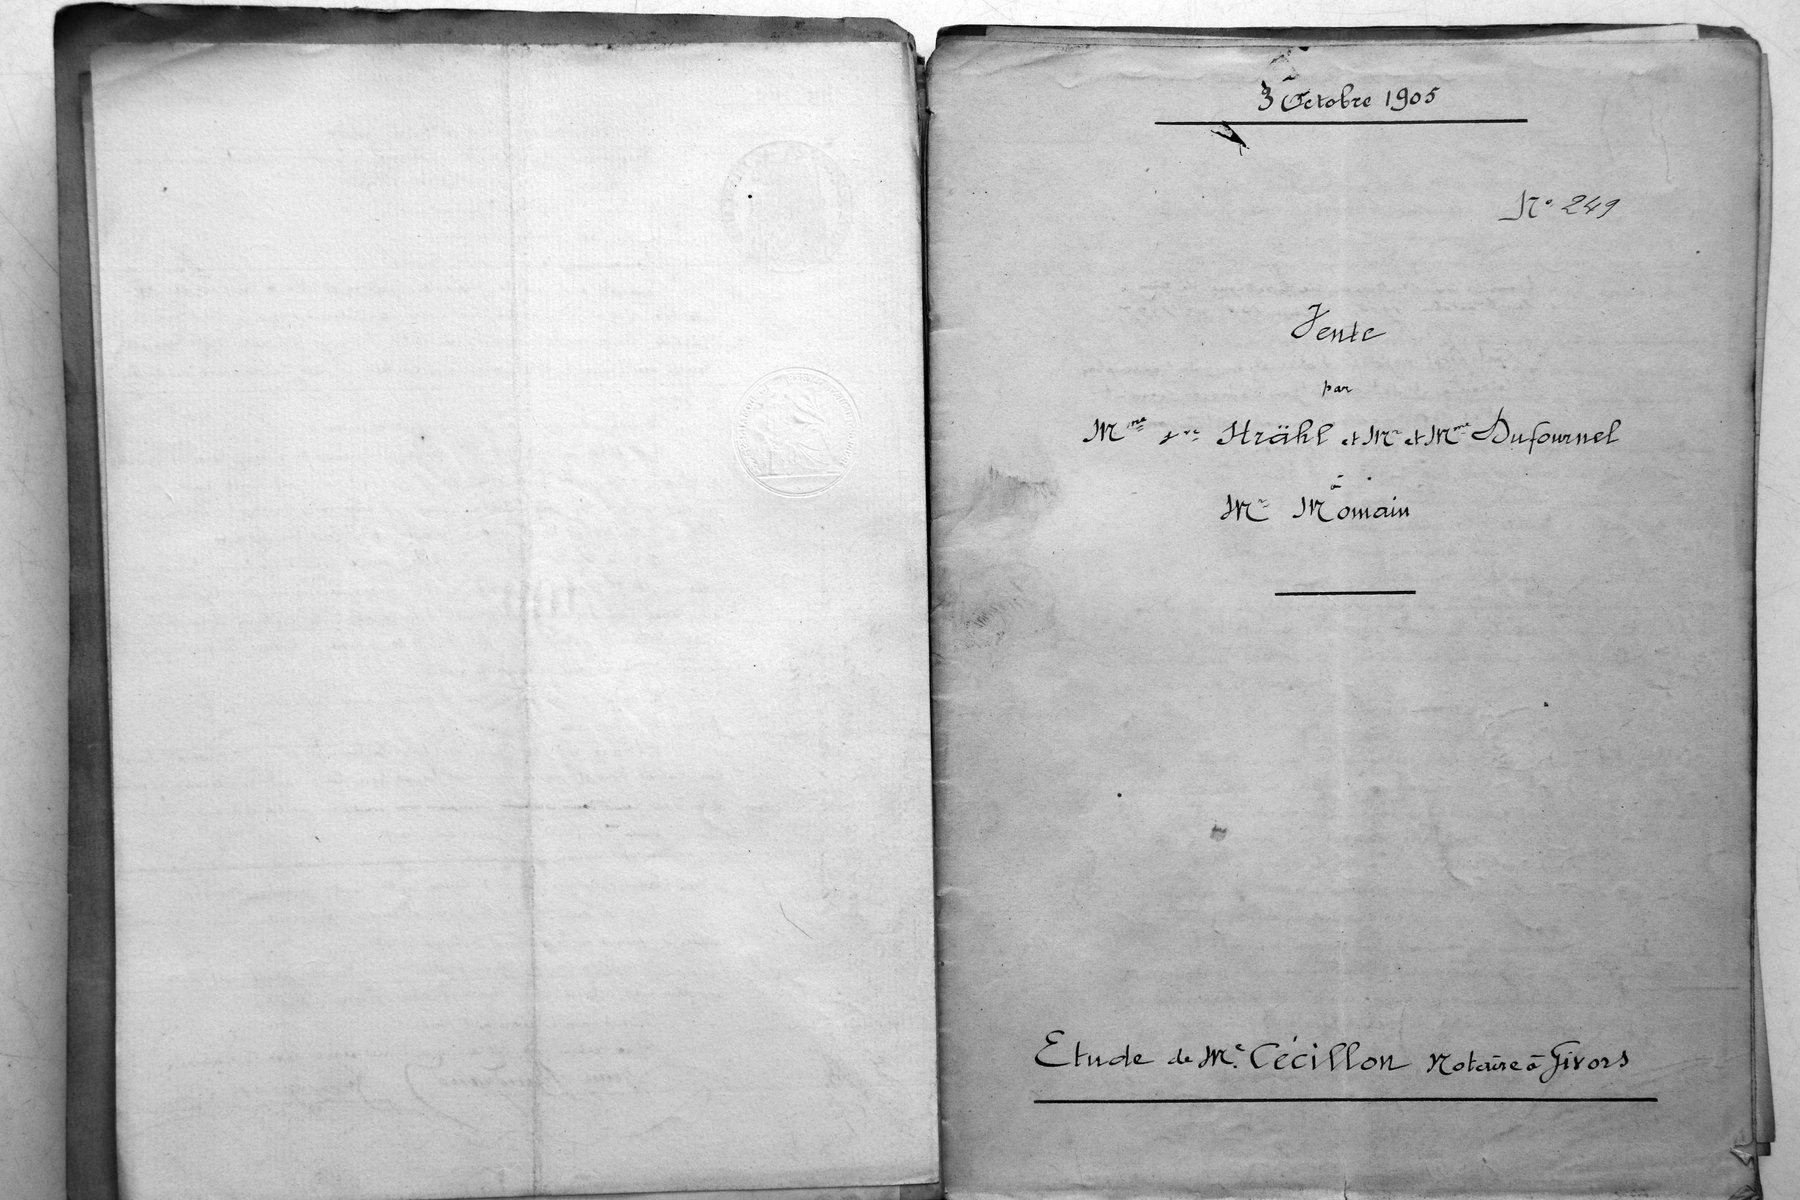 3 Octobre 1905
N° 249
Vente
par
Mme Vve Strähl et Mr et Mme Dufournel
à
Mr Momain
Etude de Me Cécillon Notaire à Givors